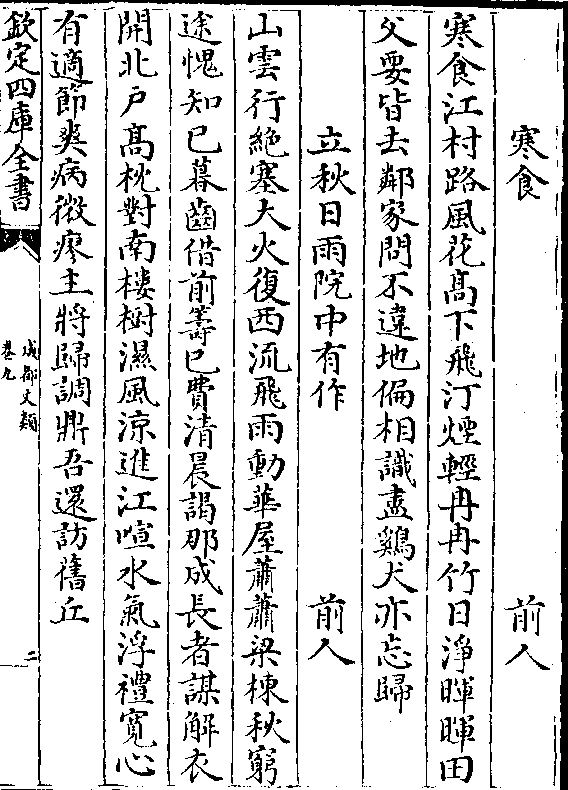 寒食　前人
寒食江村路風花髙下飛汀煙輕冉冉竹日淨暉暉田
父要皆去鄰家問不違地偏相識盡鷄犬亦忘歸
立秋日雨院中有作　前人
山雲行絶塞大火復西流飛雨動華屋蕭蕭梁棟秋窮
途愧知已暮齒借前籌已費清晨謁那成長者謀解衣
開北戸髙枕對南樓樹濕風涼進江喧水氣浮禮寛心
有適節爽病微瘳主將歸調鼎吾還訪舊丘
欽定四庫全書
成都文類
卷九
二